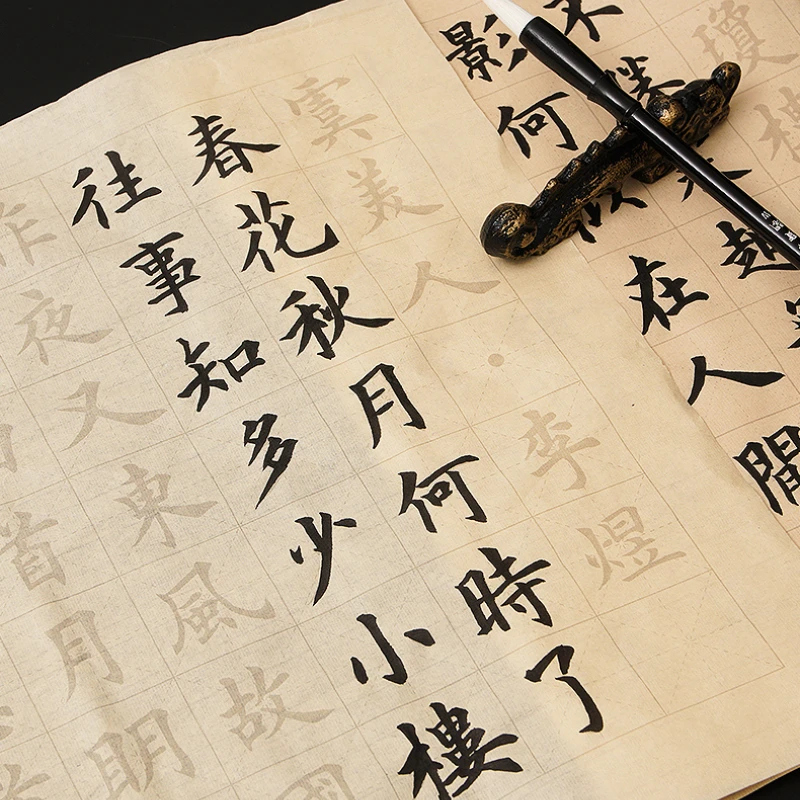 瓊樓
不勝起
影何似在人間
虞美人 • 李煜
春花秋月何時了
往事知多少小樓
昨夜又東風故國
首月明